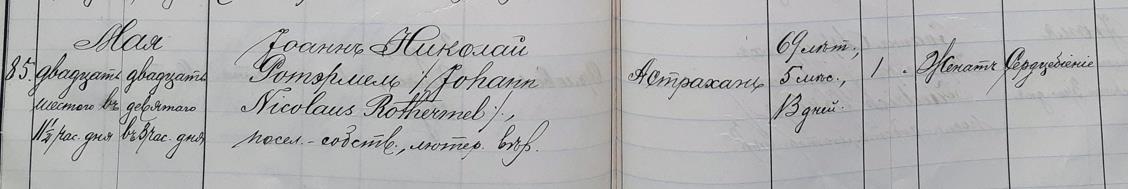 Мая
85. двадцать двадцать
шестого въ девятаго
11½ час. дня въ 5 час. дня
Іоаннъ Николай
Ротэрмель /: Johann
Nicolaus Rothermel :/,
посел.-собств., лютер. вѣр.
Астрахань
69 лѣт.,
5 мѣс.,
13 дней.
1
"
Женатъ
Сердцебіеніе